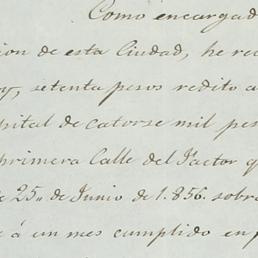 Como encargad
ion de esta Ciudad, he re
y, setenta pesos redito a
pital de catorse mil pe
primera Calle del Factor q
e 25,, de Junio de 1.856. sobr
é á un mes cumplido en